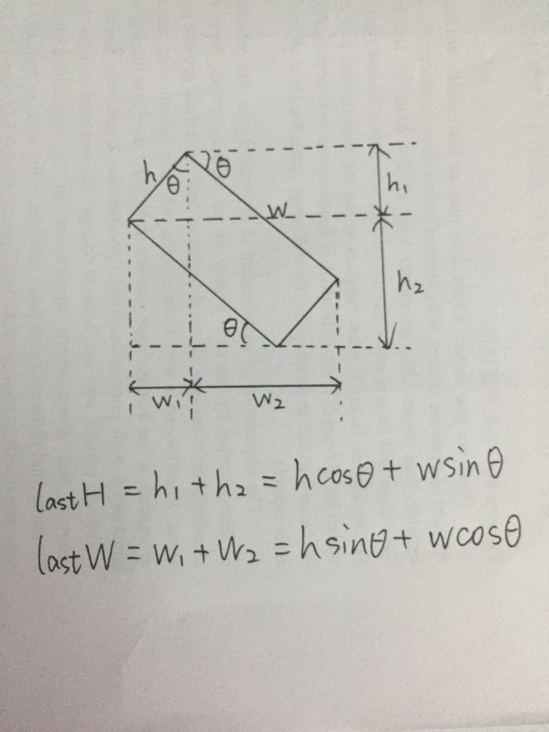 h θ θ
w h₁
h₂
θ
w₁ w₂
lastH = h₁ + h₂ = hcosθ + wsinθ
lastW = w₁ + w₂ = hsinθ + wcosθ